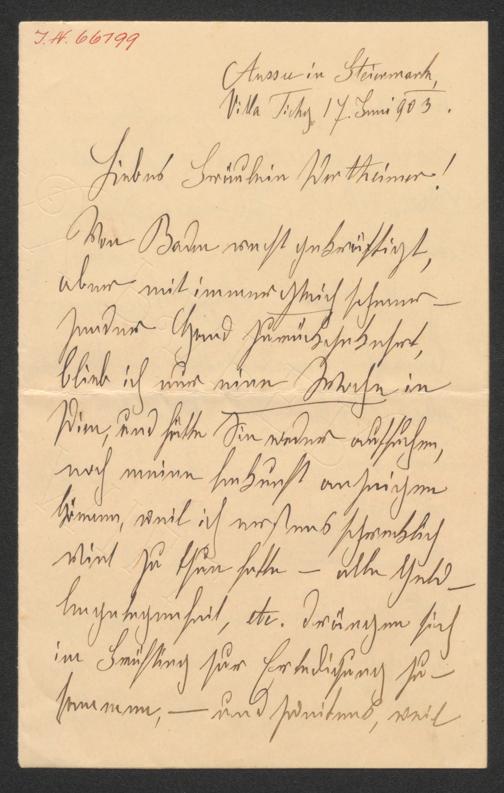 I.N. 66799
Aussee in Steiermark,
Villa Tichy, 17. Juni 903.
Liebes Fräulein Wertheimer!
Von Baden recht gekräftigt,
aber mit immer gleich schmer-
zender Hand zurückgekehrt,
blieb ich nur eine Woche in
Wien, und hätte Sie weder aufsuchen,
noch meine Ankunft anzeigen
können, weil ich erstens schrecklich
viel zu thun hatte – alle Geld-
Angelegenheit, etc. drängen sich
im Frühling zur Erledigung zu-
sammen, – und zweitens, weil